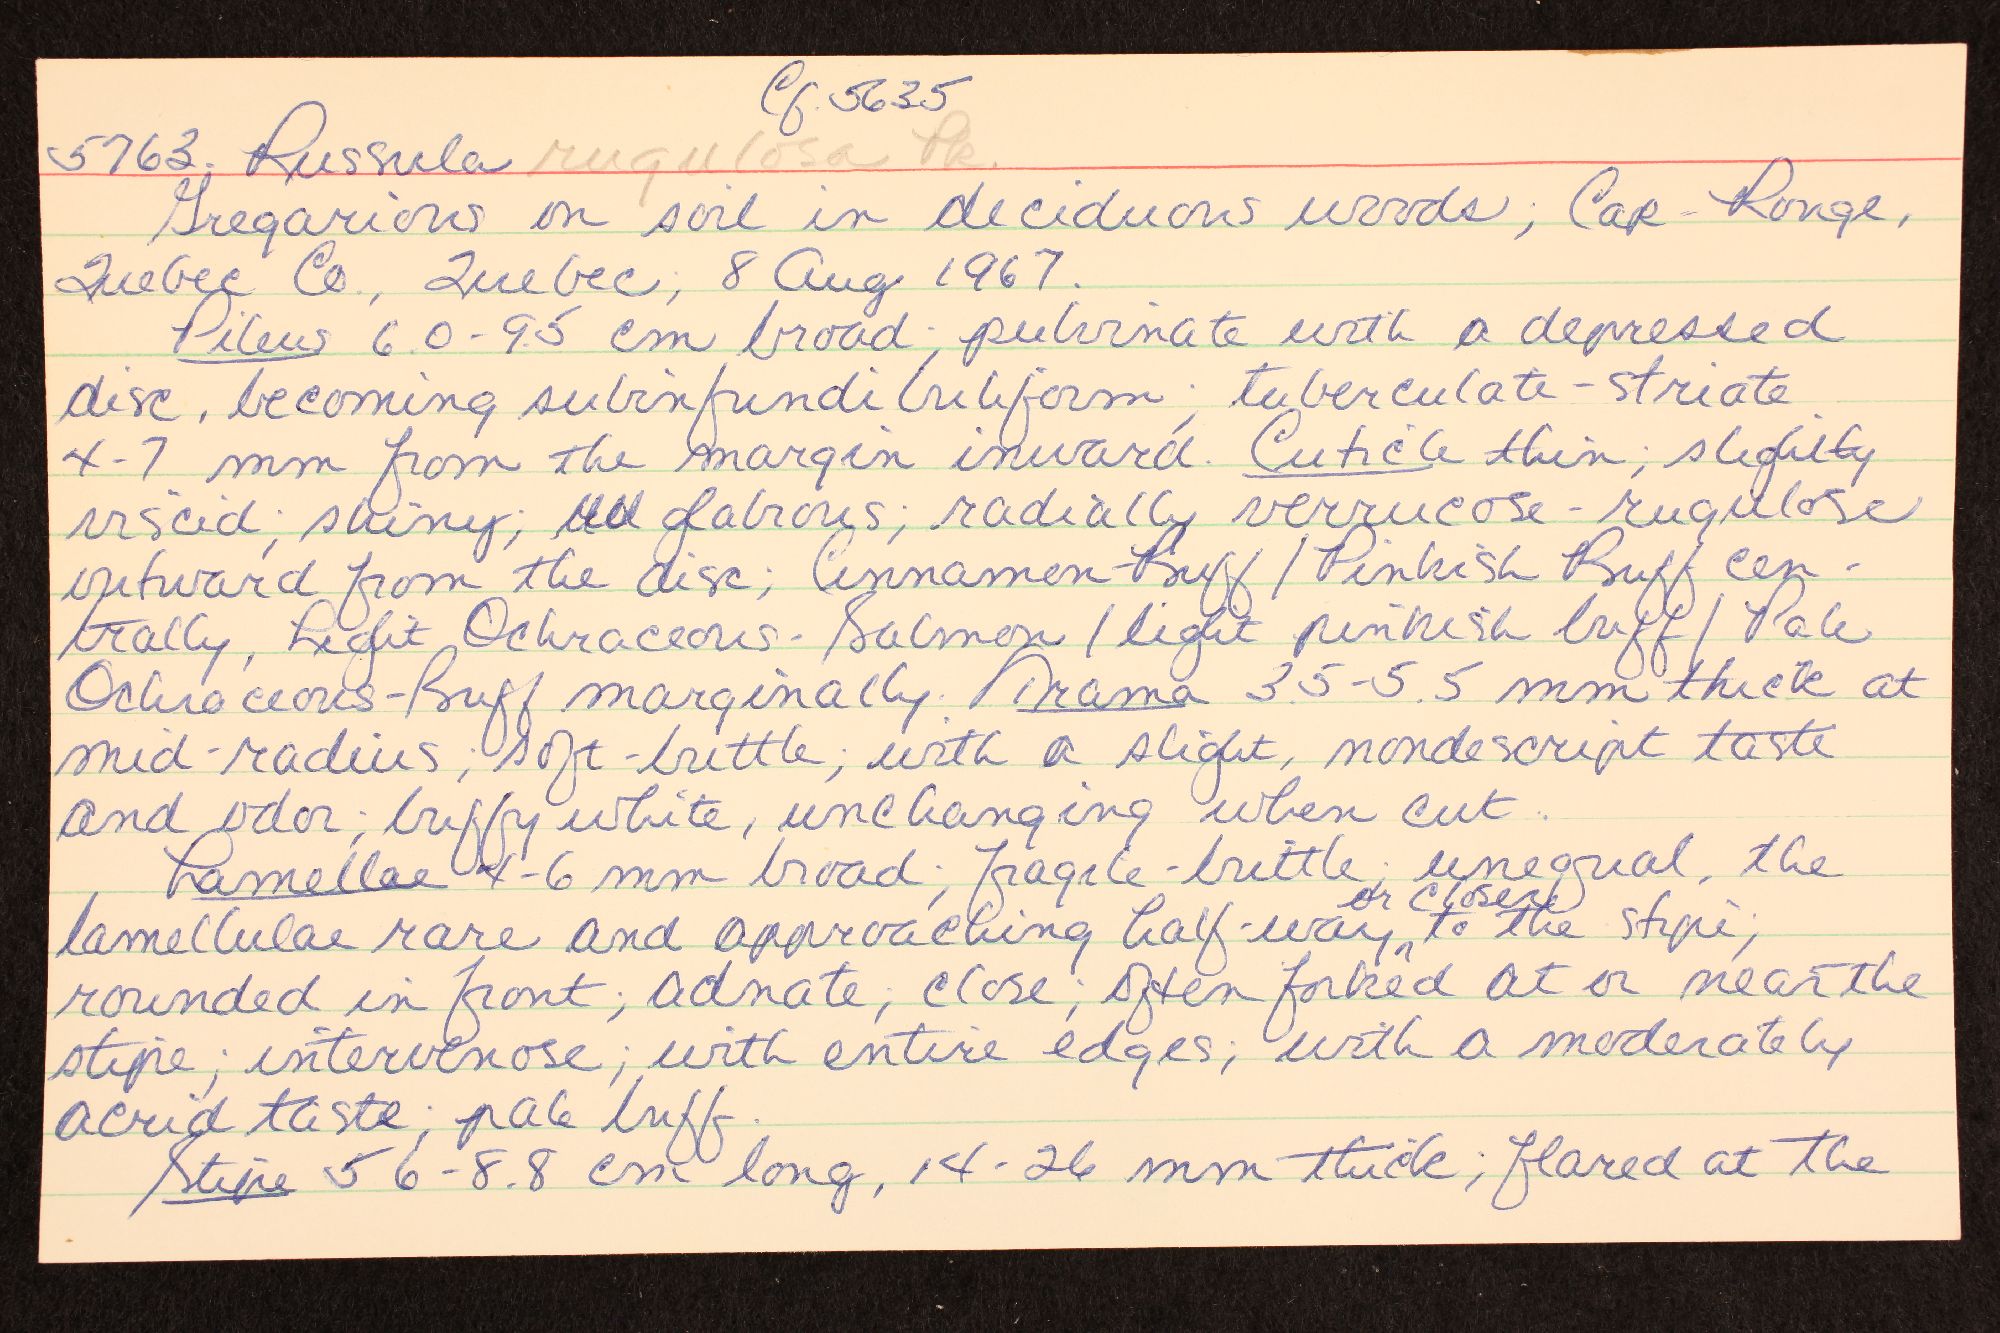 Cf. 5635
5763. Russula rugulosa Pk.
Gregarious on soil in deciduous woods; Cap-Rouge,
Quebec Co., Quebec; 8 Aug 1967.
Pileus 6.0-9.5 cm broad; pulvinate with a depressed
disc, becoming subinfundibuliform; tuberculate-striate
4-7 mm from the margin inward. Cuticle thin; slightly
viscid; shiny; glabrous; radially verrucose-rugulose
outward from the disc; Cinnamon-Buff/Pinkish Buff cen-
trally, Light Ochraceous-Salmon/light pinkish buff/Pale
Ochraceous-Buff marginally. Trama 3.5-5.5 mm thick at
mid-radius; soft-brittle; with a slight, nondescript taste
and odor; buffy white, unchanging when cut.
Lamellae 4-6 mm broad; fragile-brittle; unequal, the
lamellulae rare and approaching half-way or closer to the stipe;
rounded in front; adnate; close; often forked at or near the
stipe; intervenose; with entire edges; with a moderately
acrid taste; pale buff.
Stipe 5.6-8.8 cm long, 14-26 mm thick; flared at the